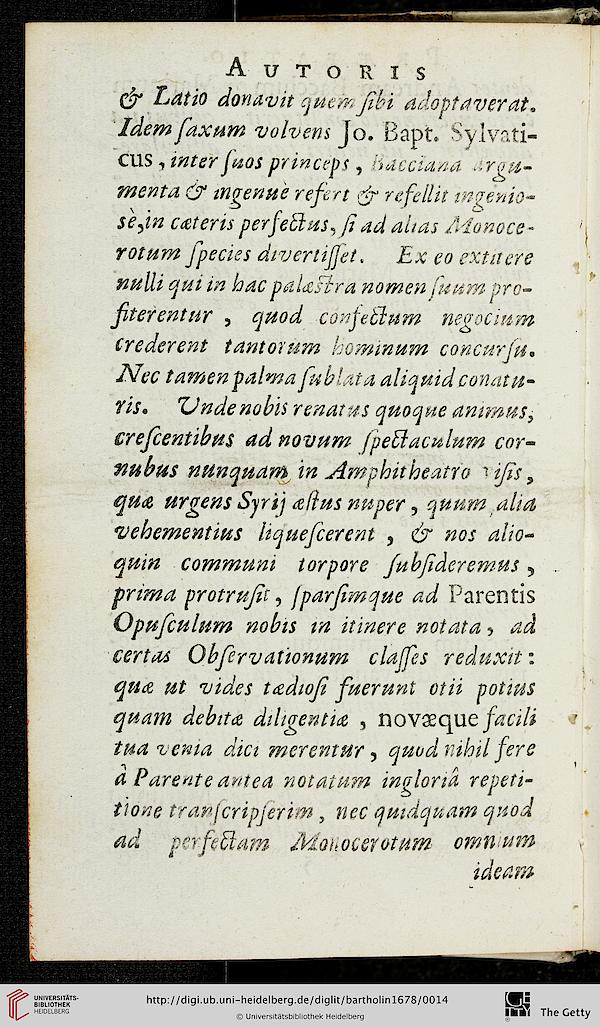 AUTORIS
& Latio donavit quem ſibi adoptaverat.
Idem ſaxum volvens Jo. Bapt. Sylvati-
cus, inter ſuos princeps, Bacciana argu-
menta & ingenuè refert & refellit ingenio-
sè, in cæteris perfectus, ſi ad alias Monoce-
rotum ſpecies divertiſſet. Ex eo extitere
nulli qui in hac palæstra nomen ſuum pro-
fiterentur, quod confectum negocium
crederent tantorum hominum concurſu.
Nec tamen palma ſublata aliquid conatu-
ris. Unde nobis renatus quoque animus,
creſcentibus ad novum ſpectaculum cor-
nubus nunquam in Amphitheatro viſis,
quæ urgens Syrij æſtus nuper, quum alia
vehementius liqueſcerent, & nos alio-
quin communi torpore ſubſideremus,
prima protruſit, ſparſimque ad Parentis
Opuſculum nobis in itinere notata, ad
certas Obſervationum claſſes reduxit:
quæ ut vides tædioſi fuerunt otii potius
quam debitæ diligentiæ, novæque facili
tua venia dici merentur, quod nihil fere
à Parente antea notatum ingloriâ repeti-
tione tranſcripſerim, nec quidquam quod
ad perfectam Monocerotum omnium
ideam
UNIVERSITÄTS-
BIBLIOTHEK
HEIDELBERG
http://digi.ub.uni-heidelberg.de/diglit/bartholin1678/0014
© Universitätsbibliothek Heidelberg
The Getty